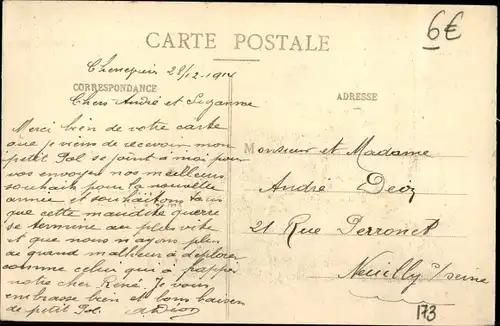 6€
CARTE POSTALE
28/12 1914
CORRESPONDANCE
ADRESSE
Chers André et Suzanne
Merci bien de votre carte
que je viens de recevoir mon
petit Pol se joint à moi pour
vos envoyer nos meilleurs
souhait pour la nouvelle
année et souhaitons tous
que cette maudite guerre
se termine au plus vite
et que nous n'ayons plus
de grand malheur à déplorer
comme celui qui à frapper
notre cher René. Je vous
embrasse bien et bons baisers
de petit Pol.
Monsieur et Madame
André
21 Rue Perronet
Neuilly s/seine
173